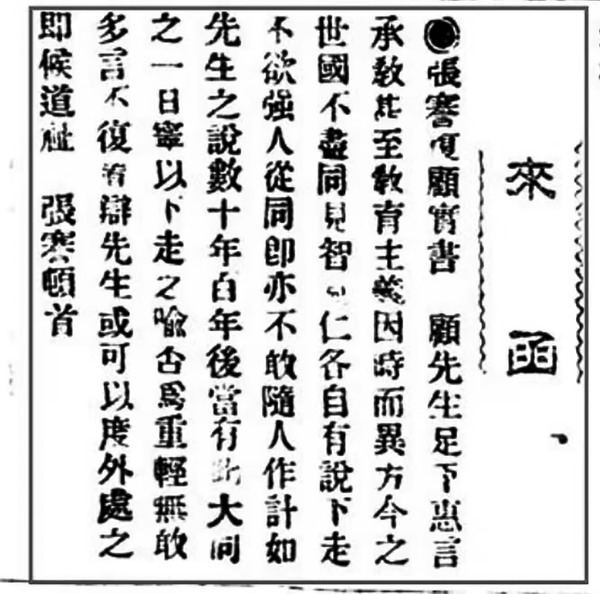 來函
●張謇復顧實書　顧先生足下惠言
承敎甚至敎育主義因時而異方今之
世國不盡同見智見仁各自有說下走
不欲強人從同卽亦不敢隨人作計如
先生之說數十年百年後當有此大同
之一日寧以下走之喩否爲重輕無敢
多言不復辯先生或可以度外處之
卽候道祉　張謇頓首